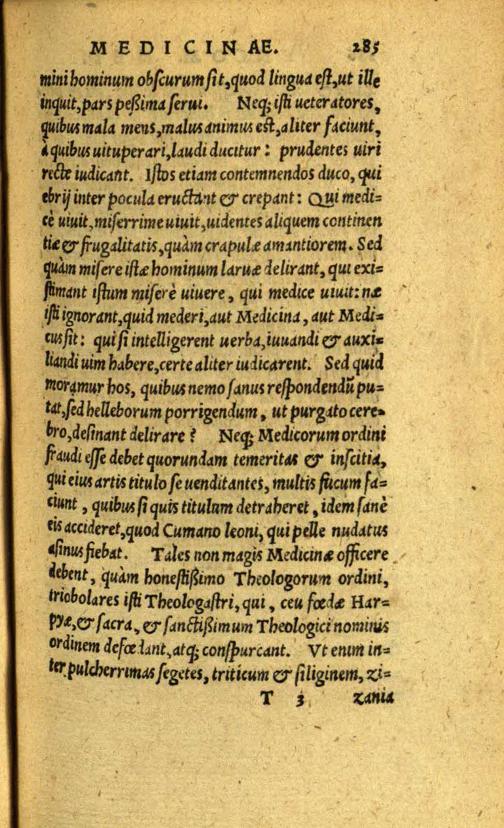 MEDICINAE. 285
mini hominum obſcurum ſit, quod lingua eſt, ut ille
inquit, pars peßima ſerui. Neq; iſti ueteratores,
quibus mala mens, malus animus eſt, aliter faciunt,
à quibus uituperari, laudi ducitur: prudentes uiri
recte iudicant. Iſtos etiam contemnendos duco, qui
ebrij inter pocula eructant & crepant: Qui medi=
cè uiuit, miſerrime uiuit, uidentes aliquem continen
tiæ & frugalitatis, quàm crapulæ amantiorem. Sed
quàm miſere iſtæ hominum laruæ delirant, qui exi=
ſtimant iſtum miſerè uiuere, qui medice uiuit: næ
iſti ignorant, quid mederi, aut Medicina, aut Medi=
cus ſit: qui ſi intelligerent uerba, iuuandi & auxi=
liandi uim habere, certe aliter iudicarent. Sed quid
moramur hos, quibus nemo ſanus reſpondendũ pu=
tat, ſed helleborum porrigendum, ut purgato cere=
bro, deſinant delirare? Neq; Medicorum ordini
fraudi eſſe debet quorundam temeritas & inſcitia,
qui eius artis titulo ſe uenditantes, multis fucum fa=
ciunt, quibus ſi quis titulum detraheret, idem ſanè
eis accideret, quod Cumano leoni, qui pelle nudatus
aſinus fiebat. Tales non magis Medicinæ officere
debent, quàm honeſtißimo Theologorum ordini,
triobolares iſti Theologaſtri, qui, ceu fœdæ Har=
pyæ, & ſacra, & ſanctißimum Theologici nominis
ordinem defœdant, atq; conſpurcant. Vt enim in=
ter pulcherrimas ſegetes, triticum & ſiliginem, zi=
T 3 zania